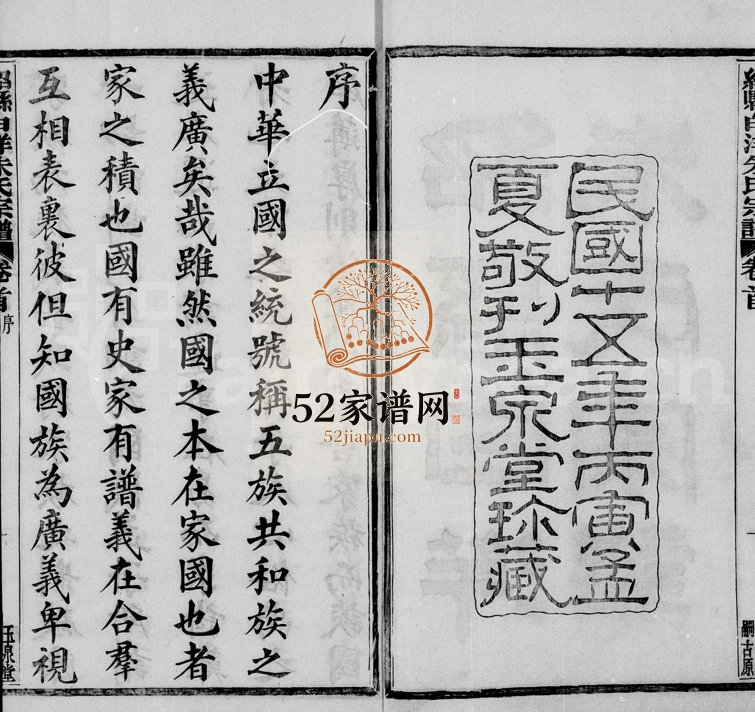 民國十五年丙寅孟
夏敬刊玉泉堂珍藏
序
中華立國之統號稱五族共和族之
義廣矣哉雖然國之本在家國也者
家之積也國有史家有譜義在合羣
互相表裏彼但知國族為廣義卑視
白洋朱氏宗譜
卷首
序
玉泉堂
52家谱网
52jiapu.com